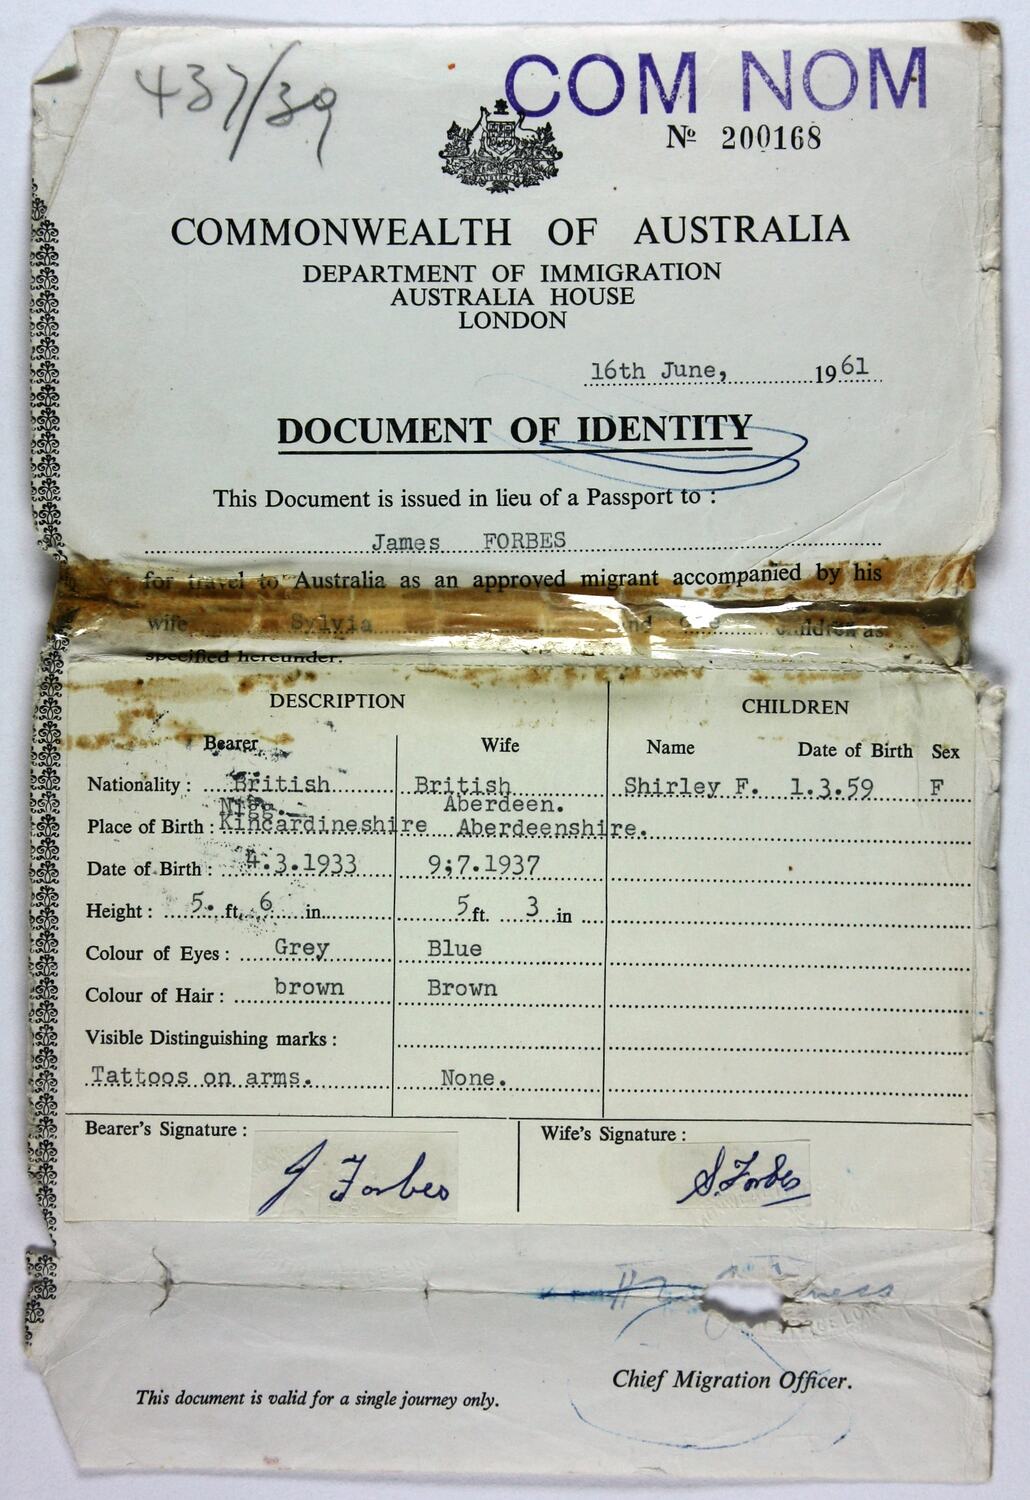 437/39
COM NOM
No 200168
COMMONWEALTH OF AUSTRALIA
DEPARTMENT OF IMMIGRATION
AUSTRALIA HOUSE
LONDON
16th June, 1961
DOCUMENT OF IDENTITY
This Document is issued in lieu of a Passport to :
James FORBES
for travel to Australia as an approved migrant accompanied by his
wife Sylvia and One children as
specified hereunder.
DESCRIPTION CHILDREN
Bearer Wife Name Date of Birth Sex
Nationality : British British Shirley F. 1.3.59 F
Nigg. Aberdeen.
Place of Birth : Kincardineshire Aberdeenshire.
Date of Birth : 4.3.1933 9;7.1937
Height : 5. ft. 6 in. 5 ft. 3 in
Colour of Eyes : Grey Blue
Colour of Hair : brown Brown
Visible Distinguishing marks :
Tattoos on arms. None.
Bearer's Signature : Wife's Signature :
J Forbes S. Forbes
Chief Migration Officer.
This document is valid for a single journey only.